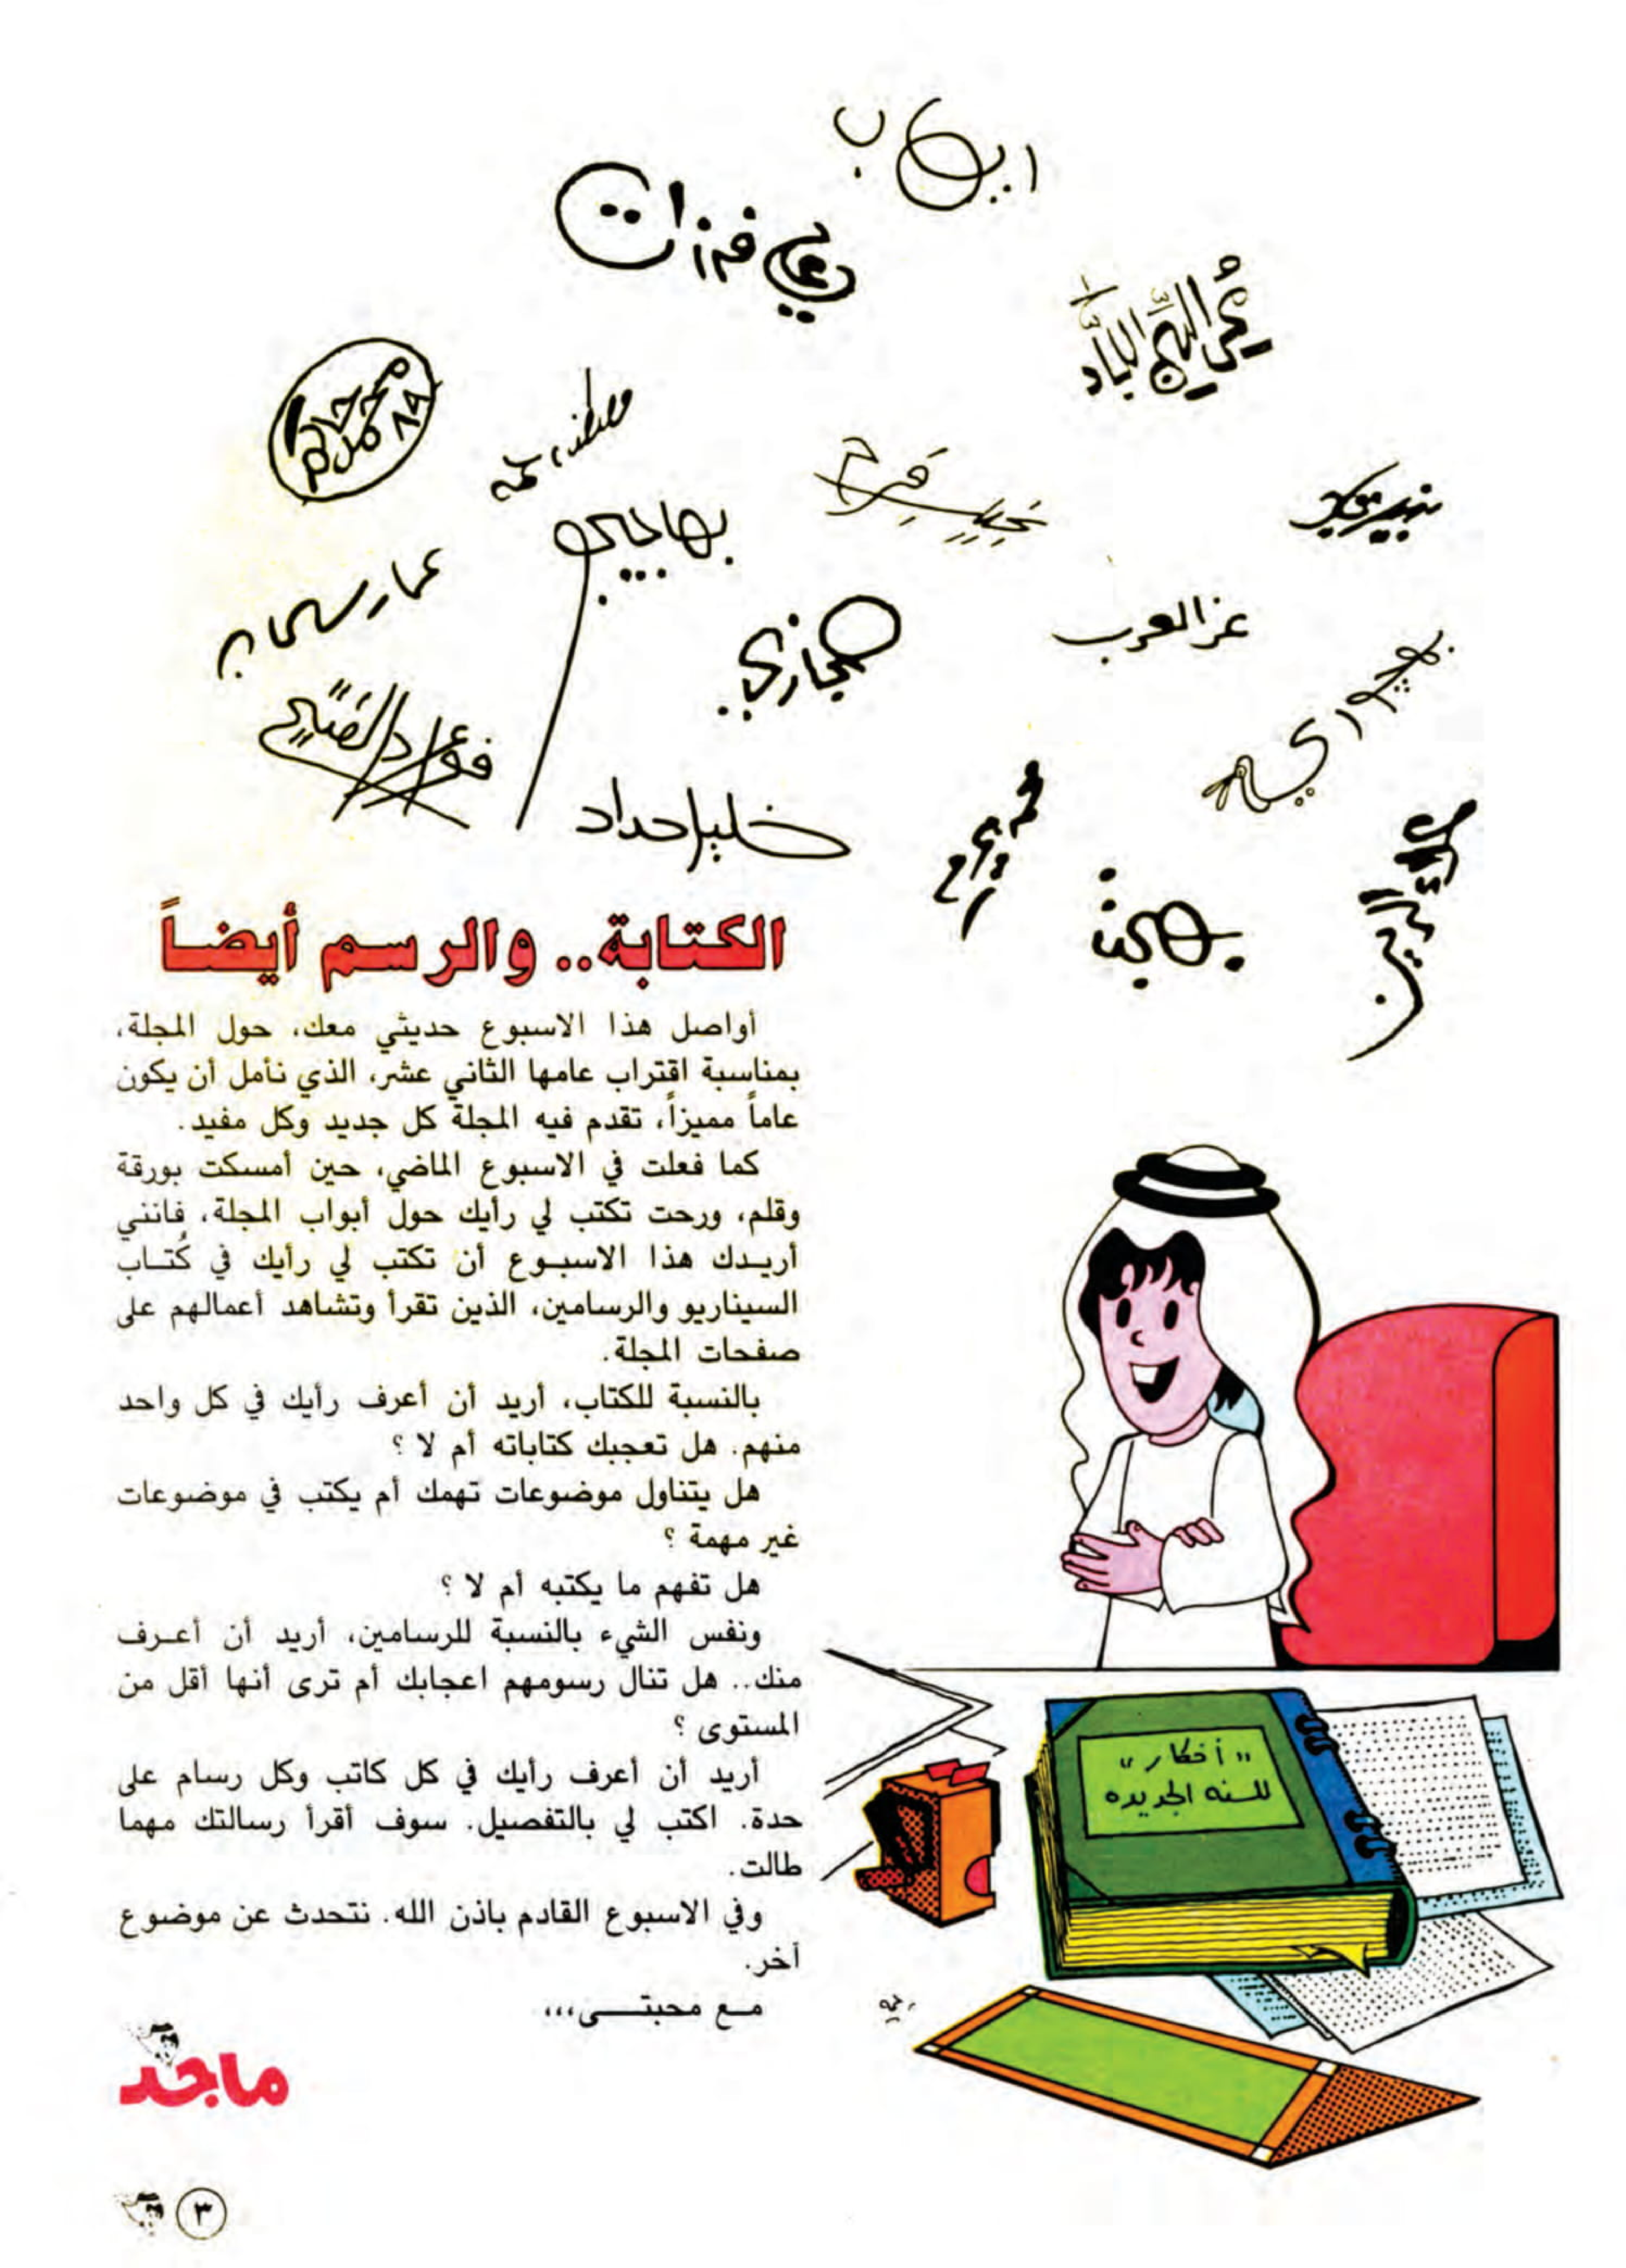 ايهاب
علي فرزات
محيي الدين اللباد
محمد حاكم
٨٩
مصطفى رحمة
فرح
بهاجيجي
عمار سلمان
حجازي
عز العرب
فؤاد الفتيح
خليل حداد
بهجت
الكتابة.. والرسم أيضاً
أواصل هذا الاسبوع حديثي معك، حول المجلة،
بمناسبة اقتراب عامها الثاني عشر، الذي نأمل أن يكون
عاماً مميزاً، تقدم فيه المجلة كل جديد وكل مفيد.
كما فعلت في الاسبوع الماضي، حين أمسكت بورقة
وقلم، ورحت تكتب لي رأيك حول أبواب المجلة، فانني
أريدك هذا الاسبوع أن تكتب لي رأيك في كُتاب
السيناريو والرسامين، الذين تقرأ وتشاهد أعمالهم على
صفحات المجلة.
بالنسبة للكتاب، أريد أن أعرف رأيك في كل واحد
منهم. هل تعجبك كتاباته أم لا ؟
هل يتناول موضوعات تهمك أم يكتب في موضوعات
غير مهمة ؟
هل تفهم ما يكتبه أم لا ؟
ونفس الشيء بالنسبة للرسامين، أريد أن أعرف
منك.. هل تنال رسومهم اعجابك أم ترى أنها أقل من
المستوى ؟
أريد أن أعرف رأيك في كل كاتب وكل رسام على
حدة. اكتب لي بالتفصيل. سوف أقرأ رسالتك مهما
طالت.
وفي الاسبوع القادم باذن الله. نتحدث عن موضوع
آخر.
مع محبتى،،،
ماجد
"أفكار"
للسنه الجديده
٣